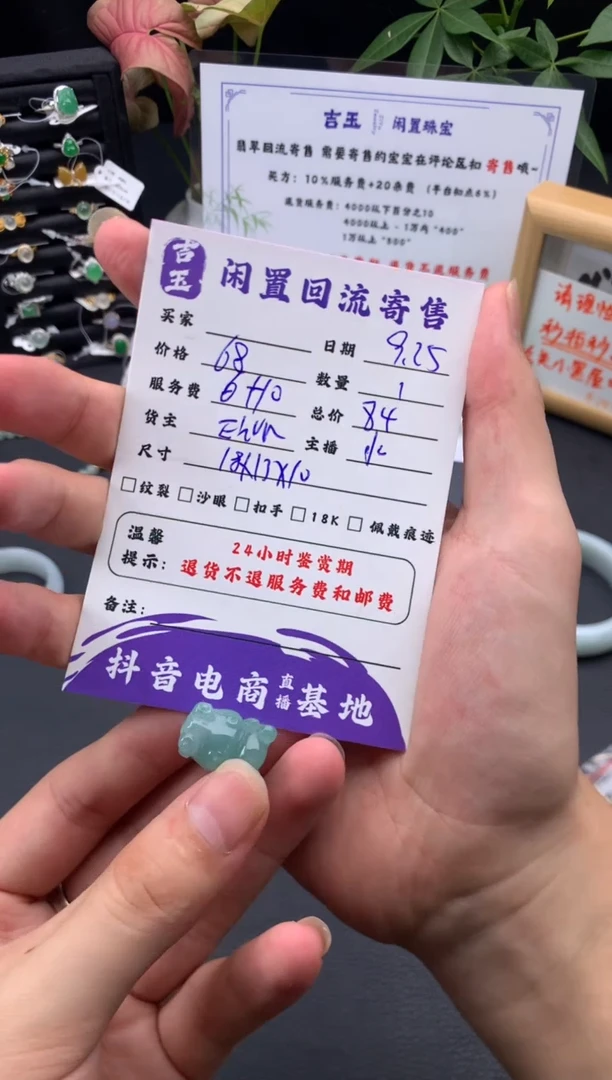 吉玉 闲置珠宝
翡翠回流寄售 需要寄售的宝宝在评论区扣 寄售哦~
买方：10%服务费+20杂费 （平台扣点6%）
退货服务费：4000以下百分之10
4000以上-1万内“400”
1万以上“800”
退货不退服务费
吉玉
闲置回流寄售
买家
日期 9.25
价格 68
数量 1
服务费 6+10
总价 84
货主
主播
尺寸 18X13X10
□纹裂 □沙眼 □扣手 □18K □佩戴痕迹
温馨提示：
24小时鉴赏期
退货不退服务费和邮费
备注：
抖音电商直播基地
请理性
秒拍秒